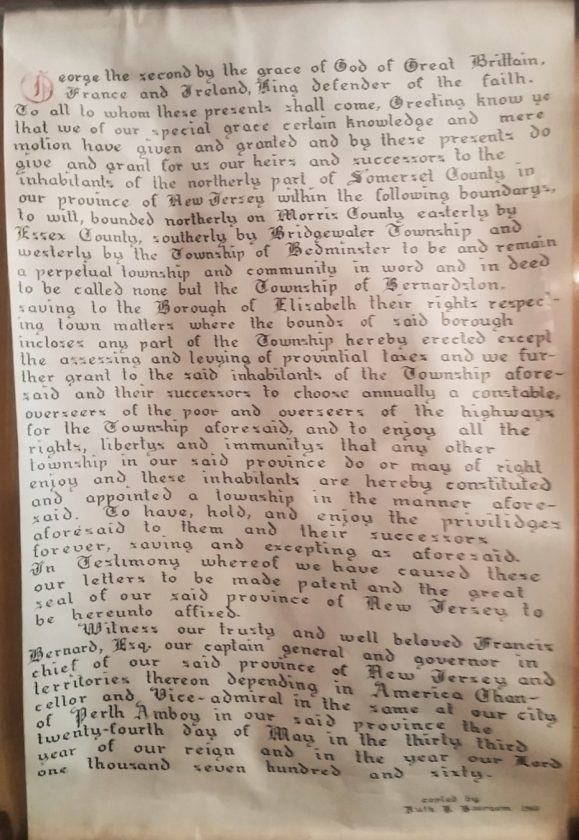 George the second by the grace of God of Great Brittain,
France and Ireland, King defender of the faith.
To all to whom these presents shall come, Greeting know ye
that we of our special grace certain knowledge and mere
motion have given and granted and by these presents do
give and grant for us our heirs and successors to the
inhabitants of the northerly part of Somerset County in
our province of New Jersey within the following boundarys,
to witt, bounded northerly on Morris County easterly by
Essex County, southerly by Bridgewater Township and
westerly by the Township of Bedminster to be and remain
a perpetual township and community in word and in deed
to be called none but the Township of Bernardston.
saving to the Borough of Elizabeth their rights respec-
ing town matters where the bounds of said borough
incloses any part of the Township hereby erected except
the assessing and levying of provintial taxes and we fur-
ther grant to the said inhabitants of the Township afore-
said and their successors to choose annually a constable,
overseers of the poor and overseers of the highways
for the Township aforesaid, and to enjoy all the
rights, libertys and immunitys that any other
township in our said province do or may of right
enjoy and these inhabitants are hereby constituted
and appointed a township in the manner afore-
said. To have, hold, and enjoy the priviliges
aforesaid to them and their successors
forever, saving and excepting as aforesaid.
In Testimony whereof we have caused these
our letters to be made patent and the great
seal of our said province of New Jersey to
be hereunto affixed.
Witness our trusty and well beloved Francis
Bernard, Esq. our captain general and governor in
chief of our said province of New Jersey and
territories thereon depending in America Chan-
cellor and Vice-admiral in the same at our city
of Perth Amboy in our said province the
twenty-fourth day of May in the thirty third
year of our reign and in the year our Lord
one thousand seven hundred and sixty.
copied by
Ruth